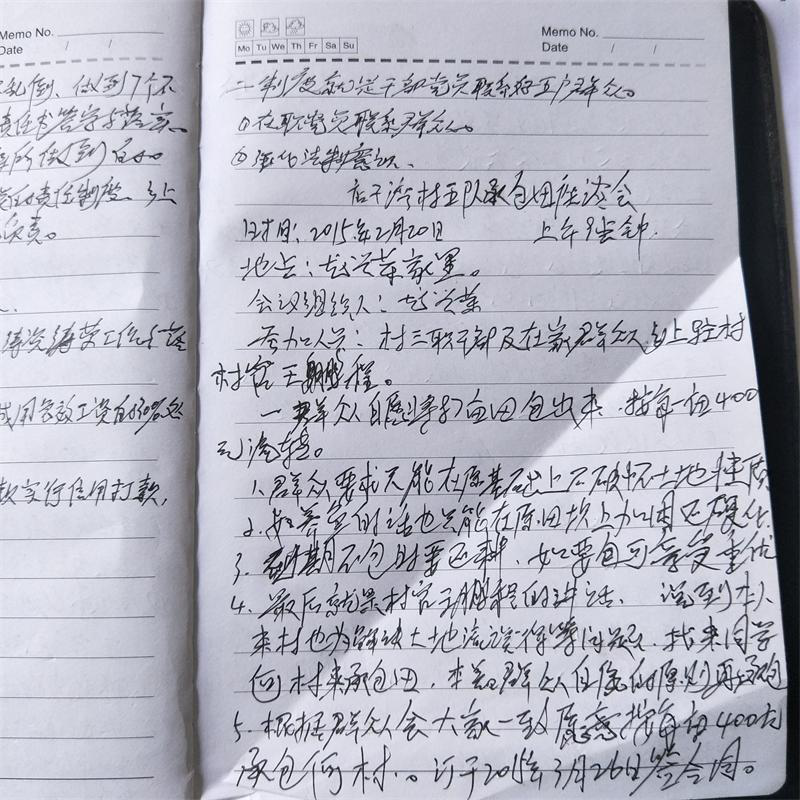 Memo No.
Date / /
乱倒、做到7个不
责任书签字与落实。
所做到
的责任制度、乡上
负责。
工作
数工资的30%
款实行信用打款,
Mo Tu We Th Fr Sa Su
Memo No.
Date / /
二制度就是干部党员联系好五户群众。
①在职党员联系群众。
②强化法制意识、
村五队承包田座谈会
日期:2015年2月20日 上午9点钟.
地点:龙兴荣家里。
会议组织人:龙兴荣
参加人员:村三职干部及在家群众乡上驻村
村官王鹏程。
一群众自愿将打亩田包出来 按每一亩400
元流转。
1、群众要求只能在原基础上不破坏土地性质
2、如养鱼的话也只能在原田坎上加固及硬化.
3、到期不包时要还耕、如要包可享受重优
4、最后就是村官王鹏程的讲话、 说到本人
来村也为解决土地流转等问题、找来同学
何村来承包田、本着群众自愿的原则再承包
5、根据群众会大家一致愿意按每亩400元
承包何村、。订于2015年3月26日签合同。